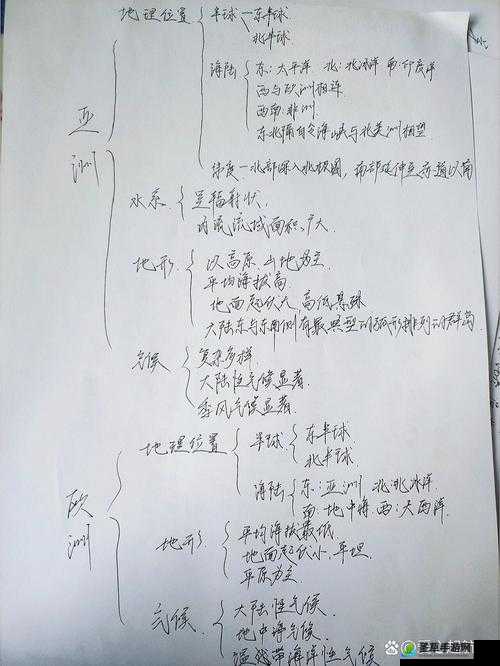 亚洲
地理位置
半球 — 东半球
北半球
海陆
东：太平洋 北：北冰洋 南：印度洋
西与欧洲相连
西南：非洲
东北隔白令海峡与北美洲相望
纬度 — 北部深入北极圈，南部延伸至赤道以南
水系
呈辐射状
内流流域面积广大
地形
以高原 山地为主
平均海拔高
地面起伏大，高低悬殊
大陆东与东南侧有最典型的弧形排列的群岛
气候
复杂多样
大陆性气候显著
季风气候显著
欧洲
地理位置
半球
东半球
北半球
海陆
东：亚洲 北：北冰洋
南：地中海 西：大西洋
地形
平均海拔最低
地面起伏小，平坦
平原为主
气候
大陆性气候
地中海气候
温带海洋性气候
圣草手游网